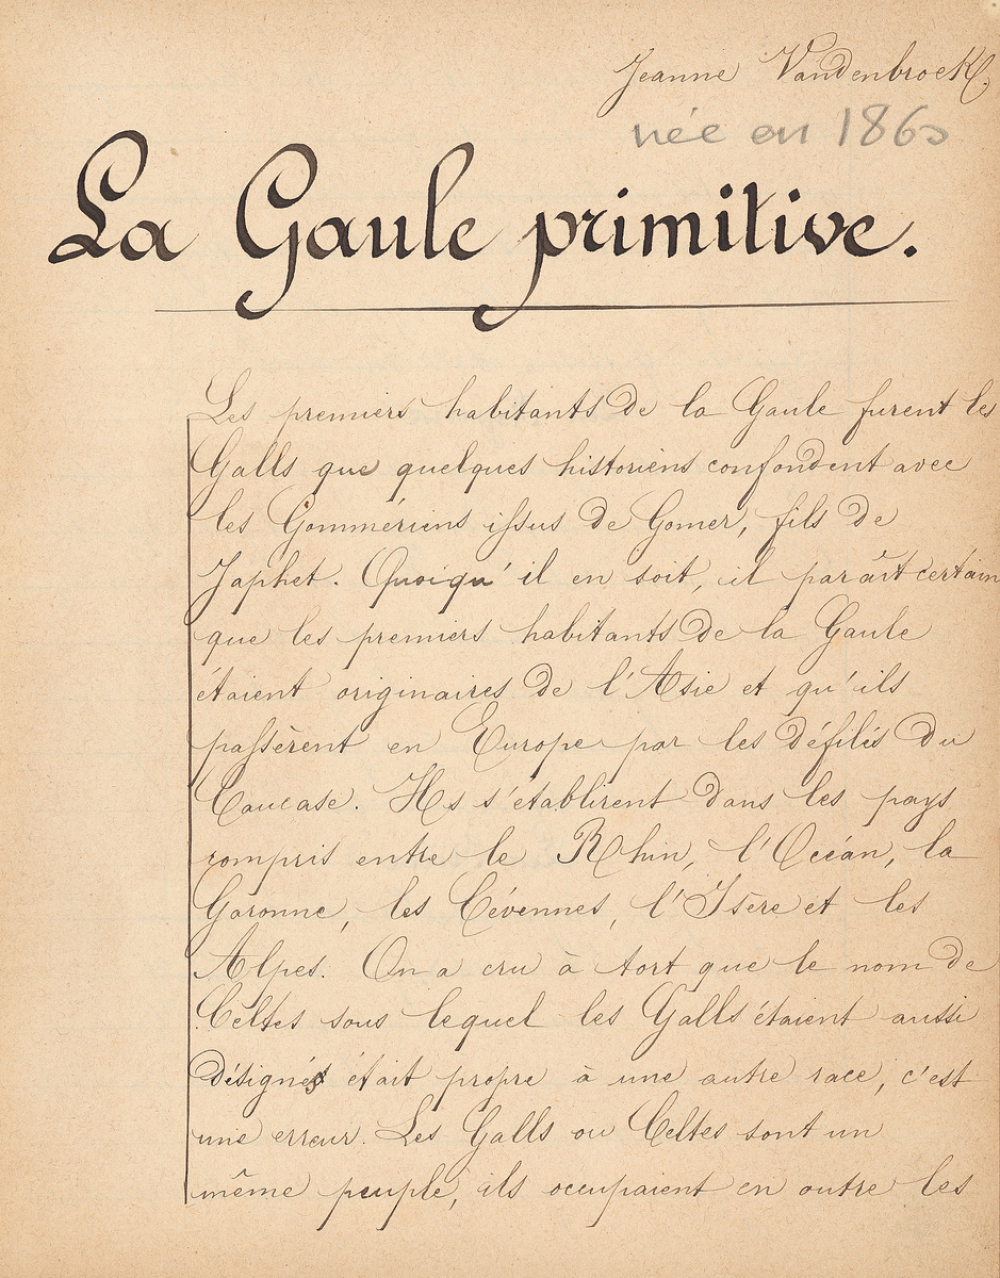 Jeanne Vandenbroek
née en 1860
La Gaule primitive.
Les premiers habitants de la Gaule furent les
Galls que quelques historiens confondent avec
les Gommériens issus de Gomer, fils de
Japhet. Quoiqu'il en soit, il paraît certain
que les premiers habitants de la Gaule
étaient originaires de l'Asie et qu'ils
passèrent en Europe par les défilés du
Caucase. Ils s'établirent dans les pays
compris entre le Rhin, l'Océan, la
Garonne, les Cévennes, l'Isère et les
Alpes. On a cru à tort que le nom de
Celtes sous lequel les Galls étaient aussi
désignés était propre à une autre race, c'est
une erreur. Les Galls ou Celtes sont un
même peuple, ils occupaient en outre les